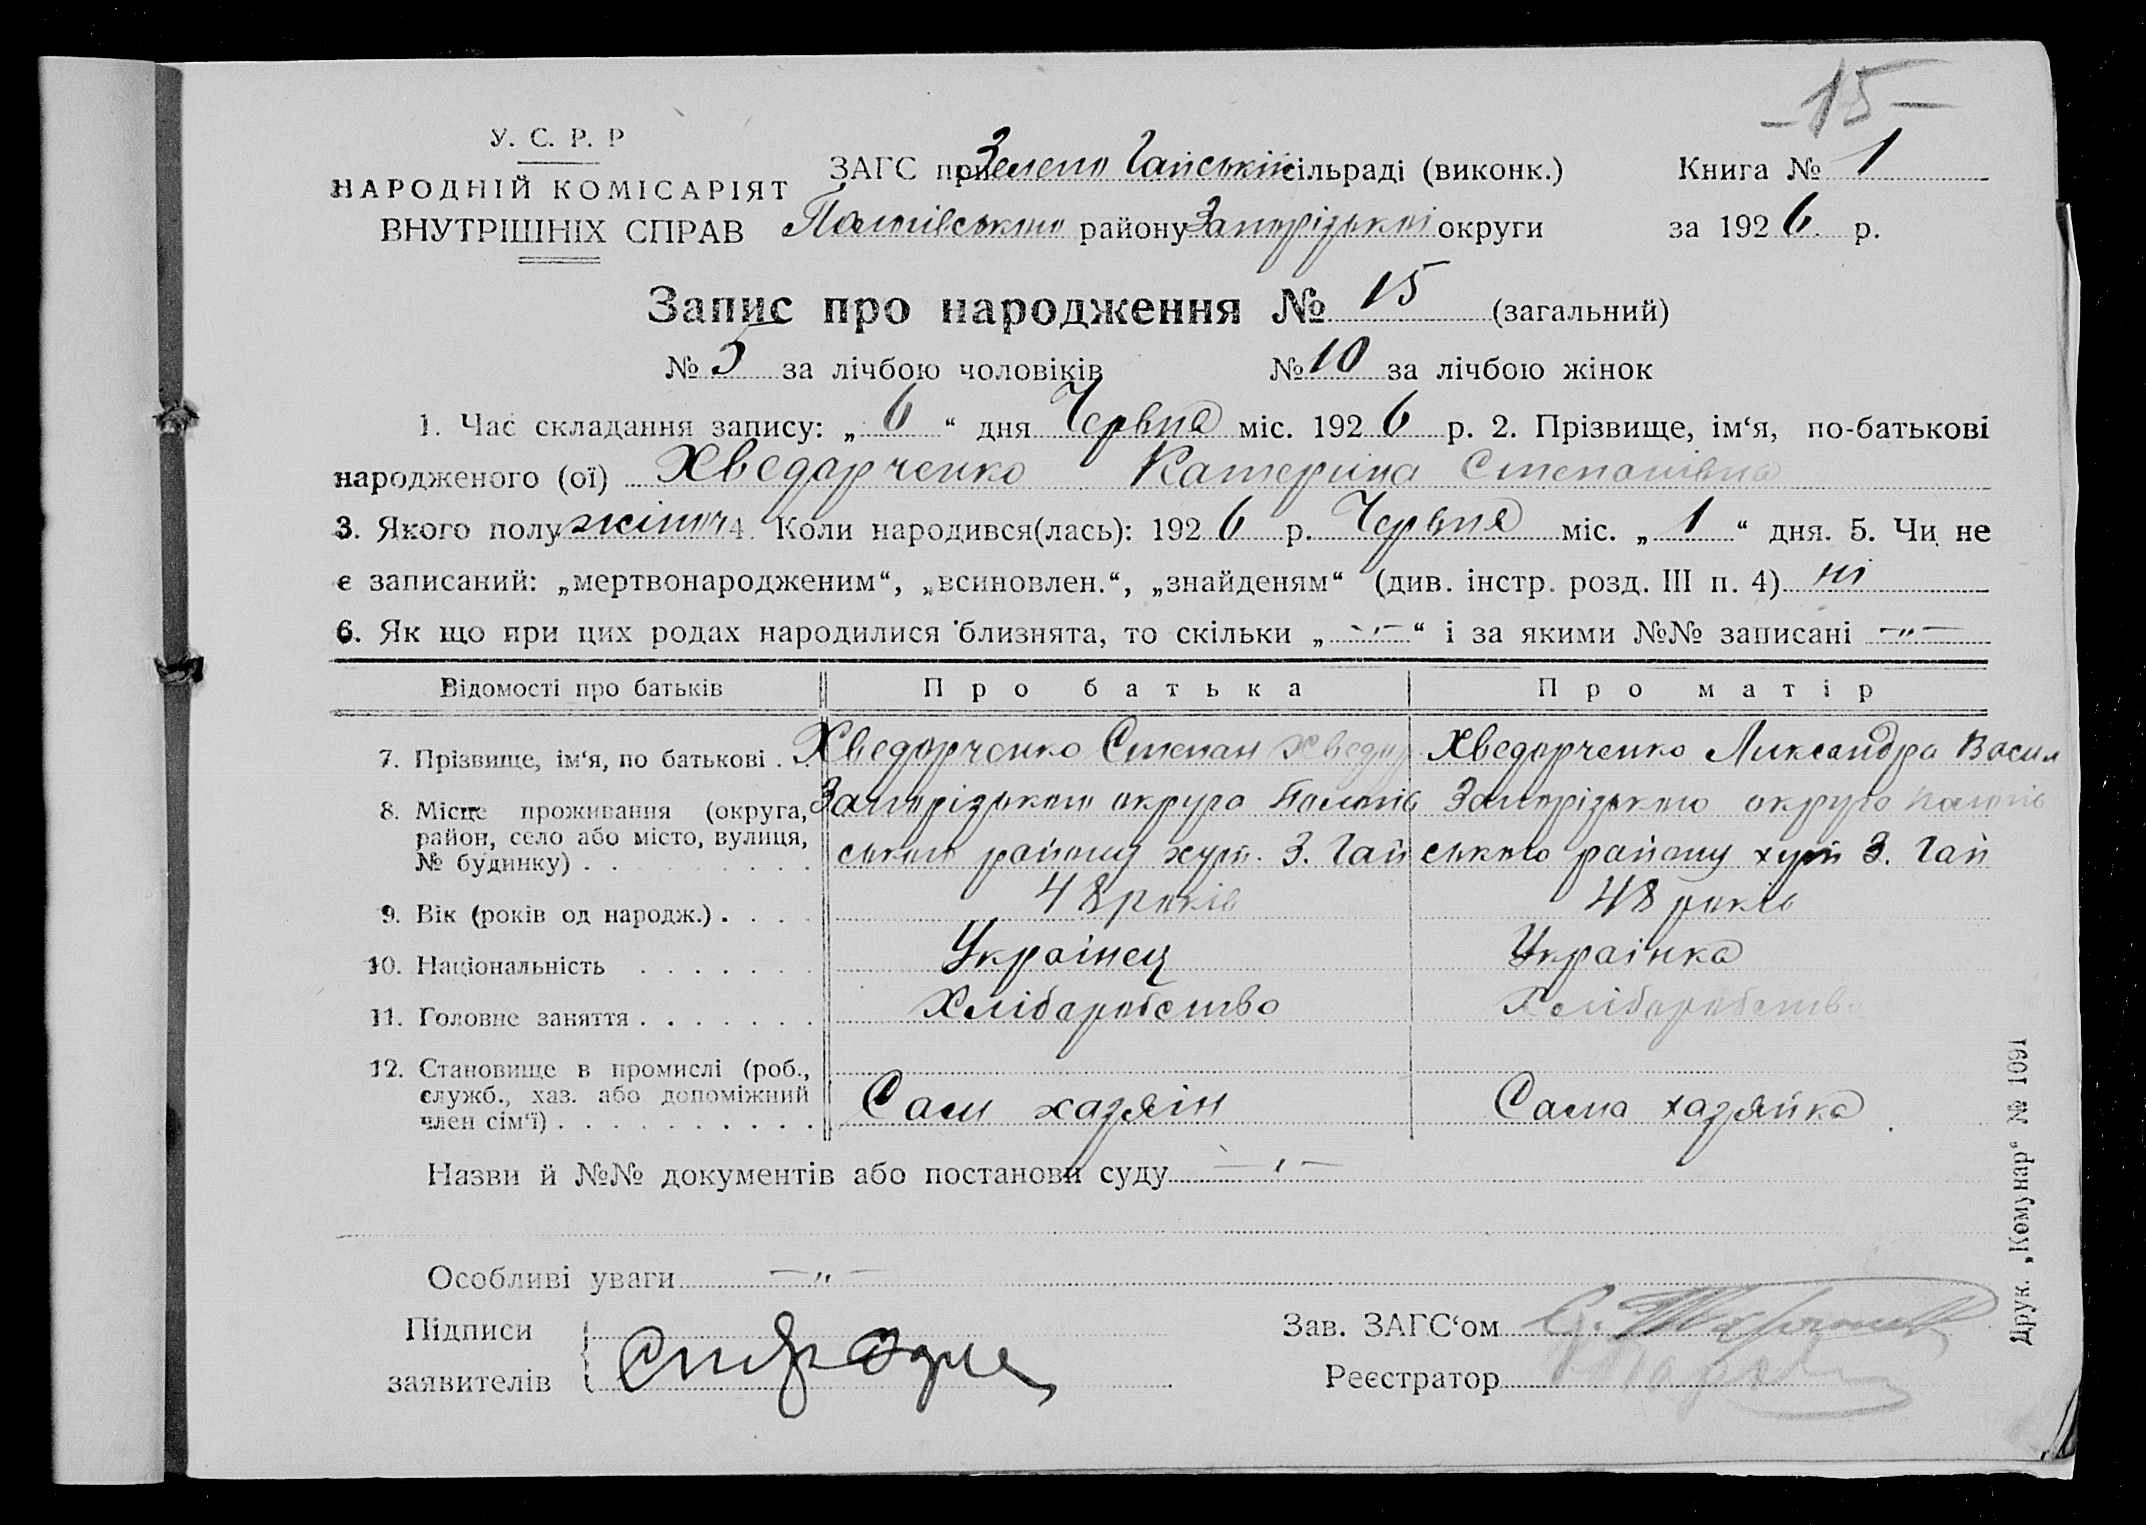 -15-
У. С. Р. Р
НАРОДНІЙ КОМІСАРІЯТ
ВНУТРІШНІХ СПРАВ
ЗАГС при Зелено Гайській сільраді (виконк.)
Пологівського району Запорізької округи
Книга № 1
за 1926 р.
Запис про народження № 15 (загальний)
№ 5 за лічбою чоловіків № 10 за лічбою жінок
1. Час складання запису: „6“ дня Червня міс. 1926 р. 2. Прізвище, ім‘я, по-батькові
народженого (ої) Хведорченко Катерина Степанівна
3. Якого полу жіноч 4. Коли народився(лась): 1926 р. Червня міс. „1“ дня. 5. Чи не
є записаний: „мертвонародженим“, „всиновлен.“, „знайденям“ (див. інстр. розд. III п. 4) ні
6. Як що при цих родах народилися близнята, то скільки „-„-“ і за якими №№ записані -„-
Відомості про батьків Про батька Про матір
7. Прізвище, ім‘я, по батькові . . Хведорченко Степан Хведор Хведорченко Ликсандра Васил
8. Місце проживання (округа, район, село або місто, вулиця, № будинку) . . . . . . . . .
Запорізького округа Пологів
ського району хут. З. Гай
Запорізького округа Пологів
ського району хут З. Гай
9. Вік (років од народж.) . . . . 48 років 48 років
10. Національність . . . . . . . Українец Українка
11. Головне заняття . . . . . . . Хліборобство Хліборобство
12. Становище в промислі (роб., служб., хаз. або допоміжний член сім‘ї) . . . . . . . . . .
Сам хазяїн Сама хазяйка
Назви й №№ документів або постанови суду -„-
Особливі уваги -„-
Підписи
заявителів
Зав. ЗАГС‘ом
Реєстратор
Друк. „Комунар“ № 1091